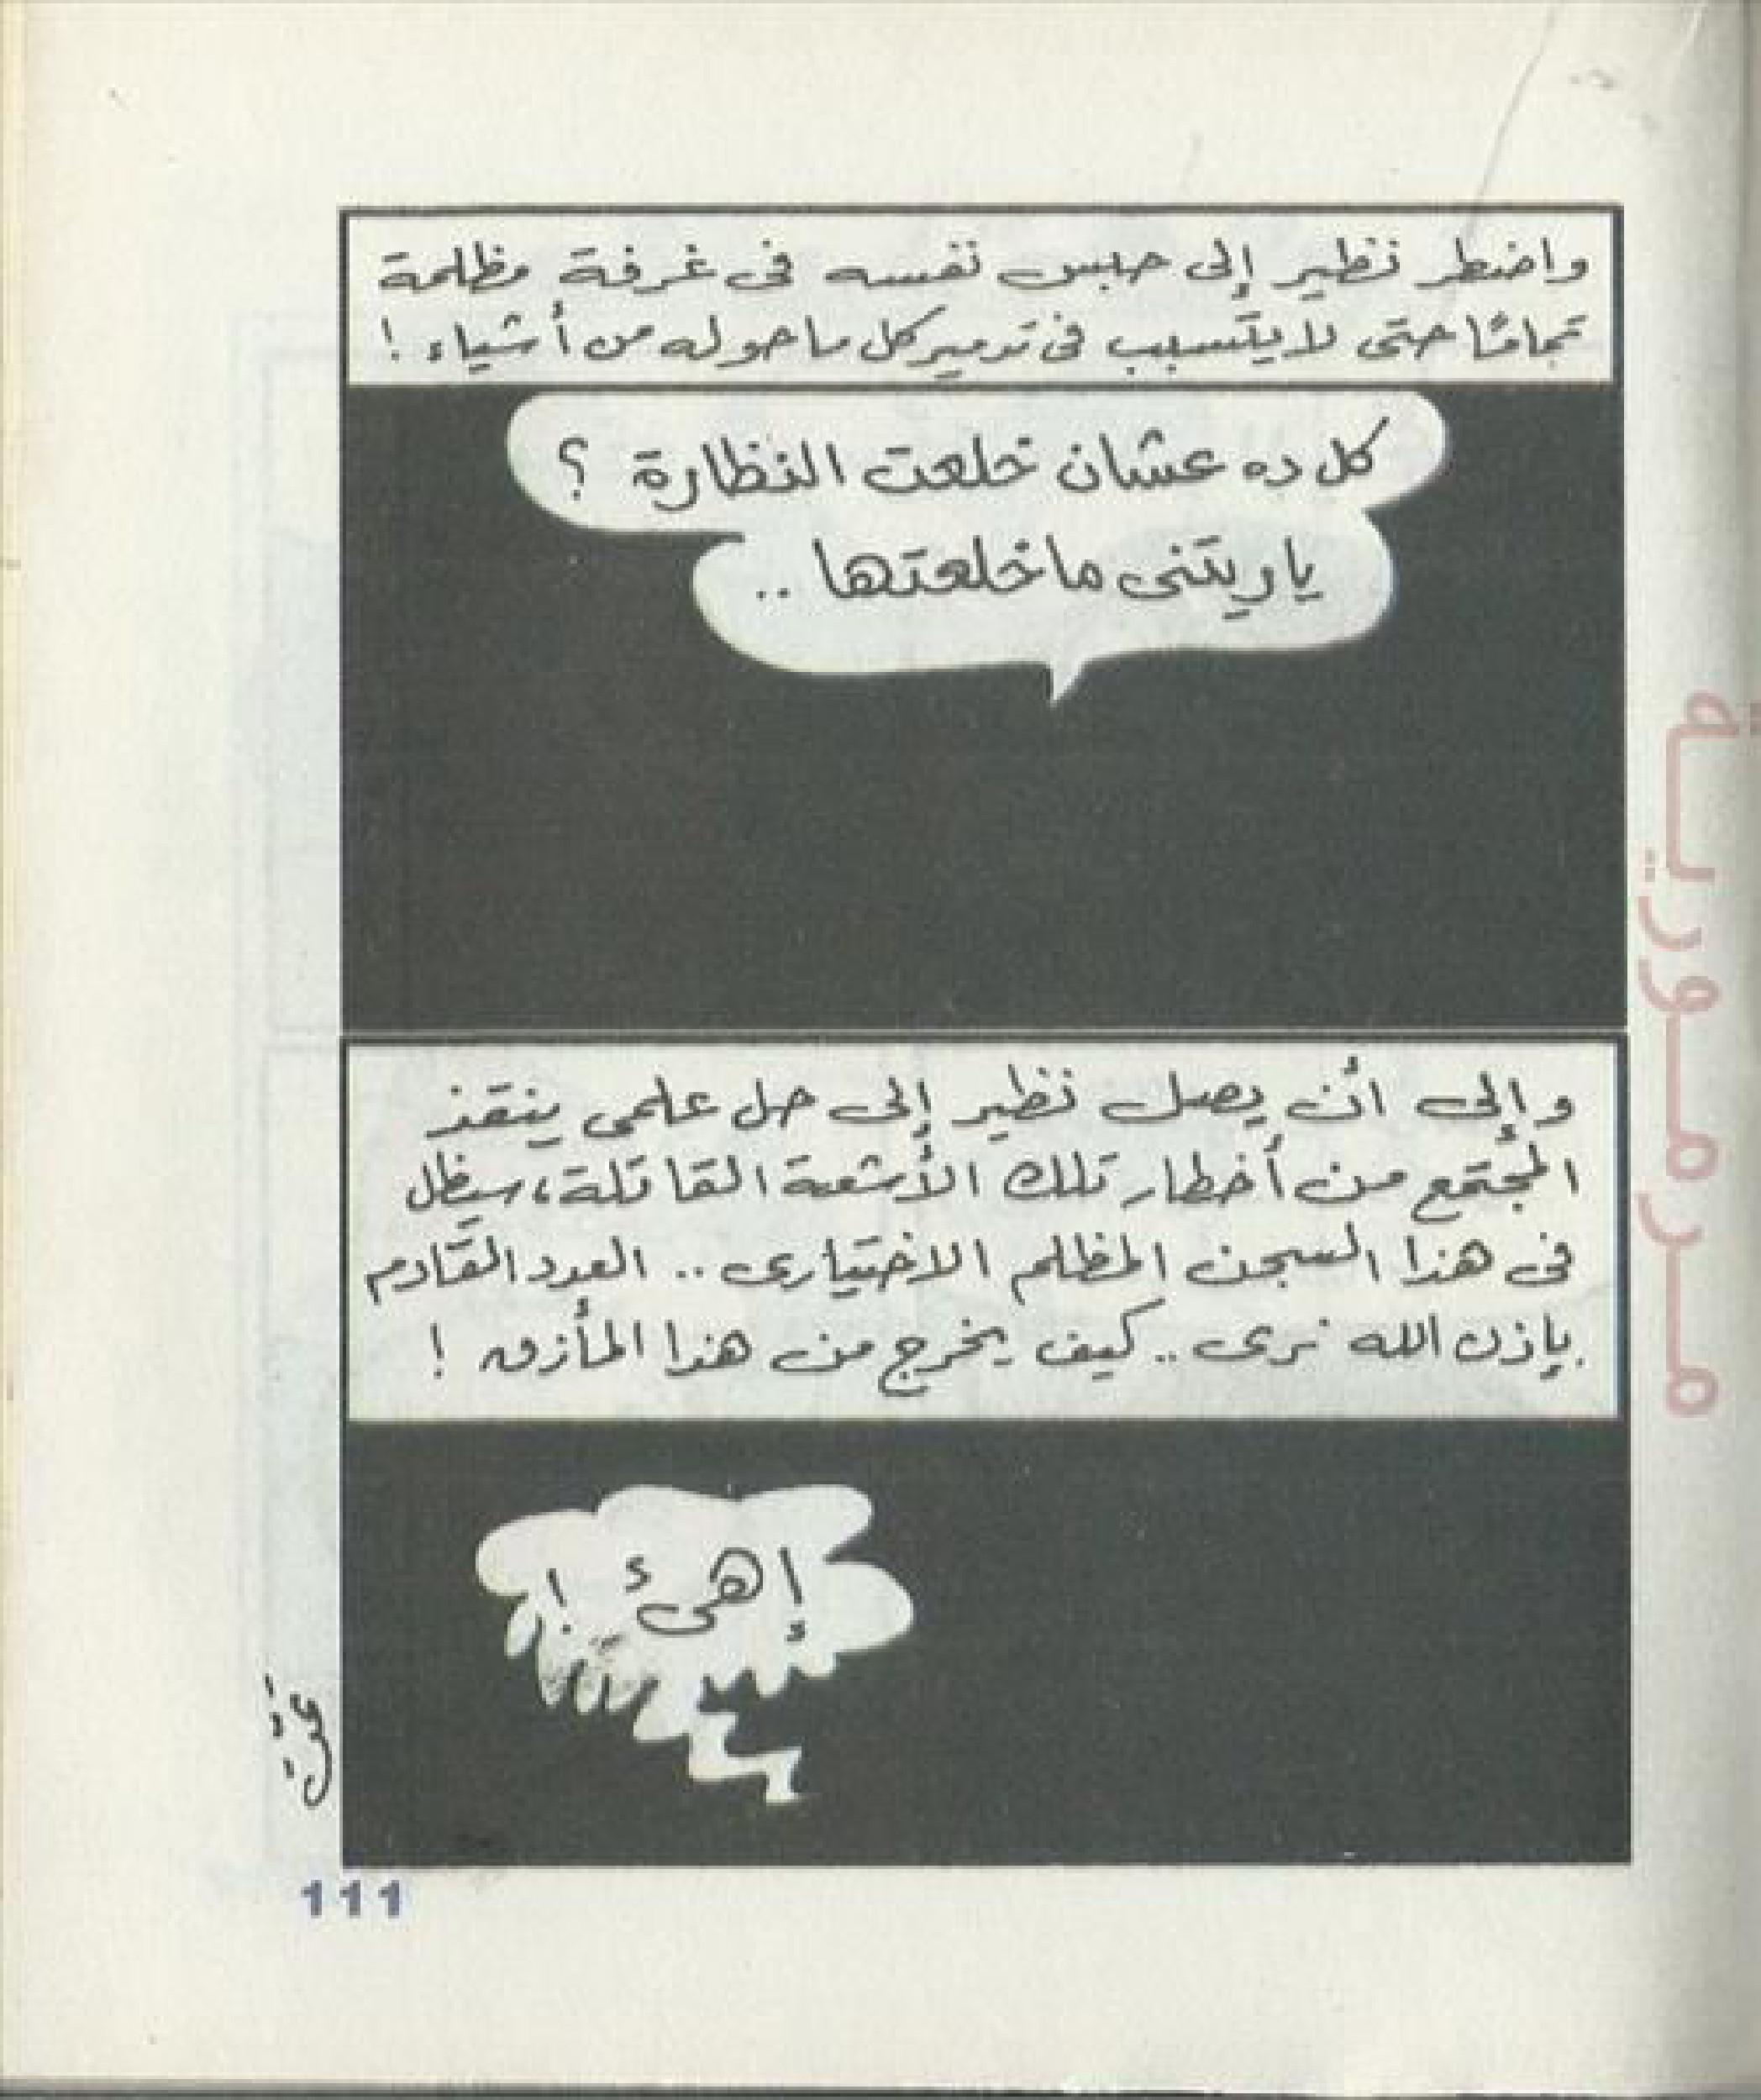 واضطر نظير إلى حبس نفسه فى غرفة مظلمة
تمامًا حتى لا يتسبب فى تدمير كل ما حوله من أشياء !
كل ده عشان خلعت النظارة ؟
ياريتنى ماخلعتها ..
وإلى أن يصل نظير إلى حل علمى ينقذ
المجتمع من أخطار تلك الأشعة القاتلة، سيظل
فى هذا السجن المظلم الاختيارى .. العدد القادم
بإذن الله نرى .. كيف يخرج من هذا المأزق !
إهئ !
111
مرمورية